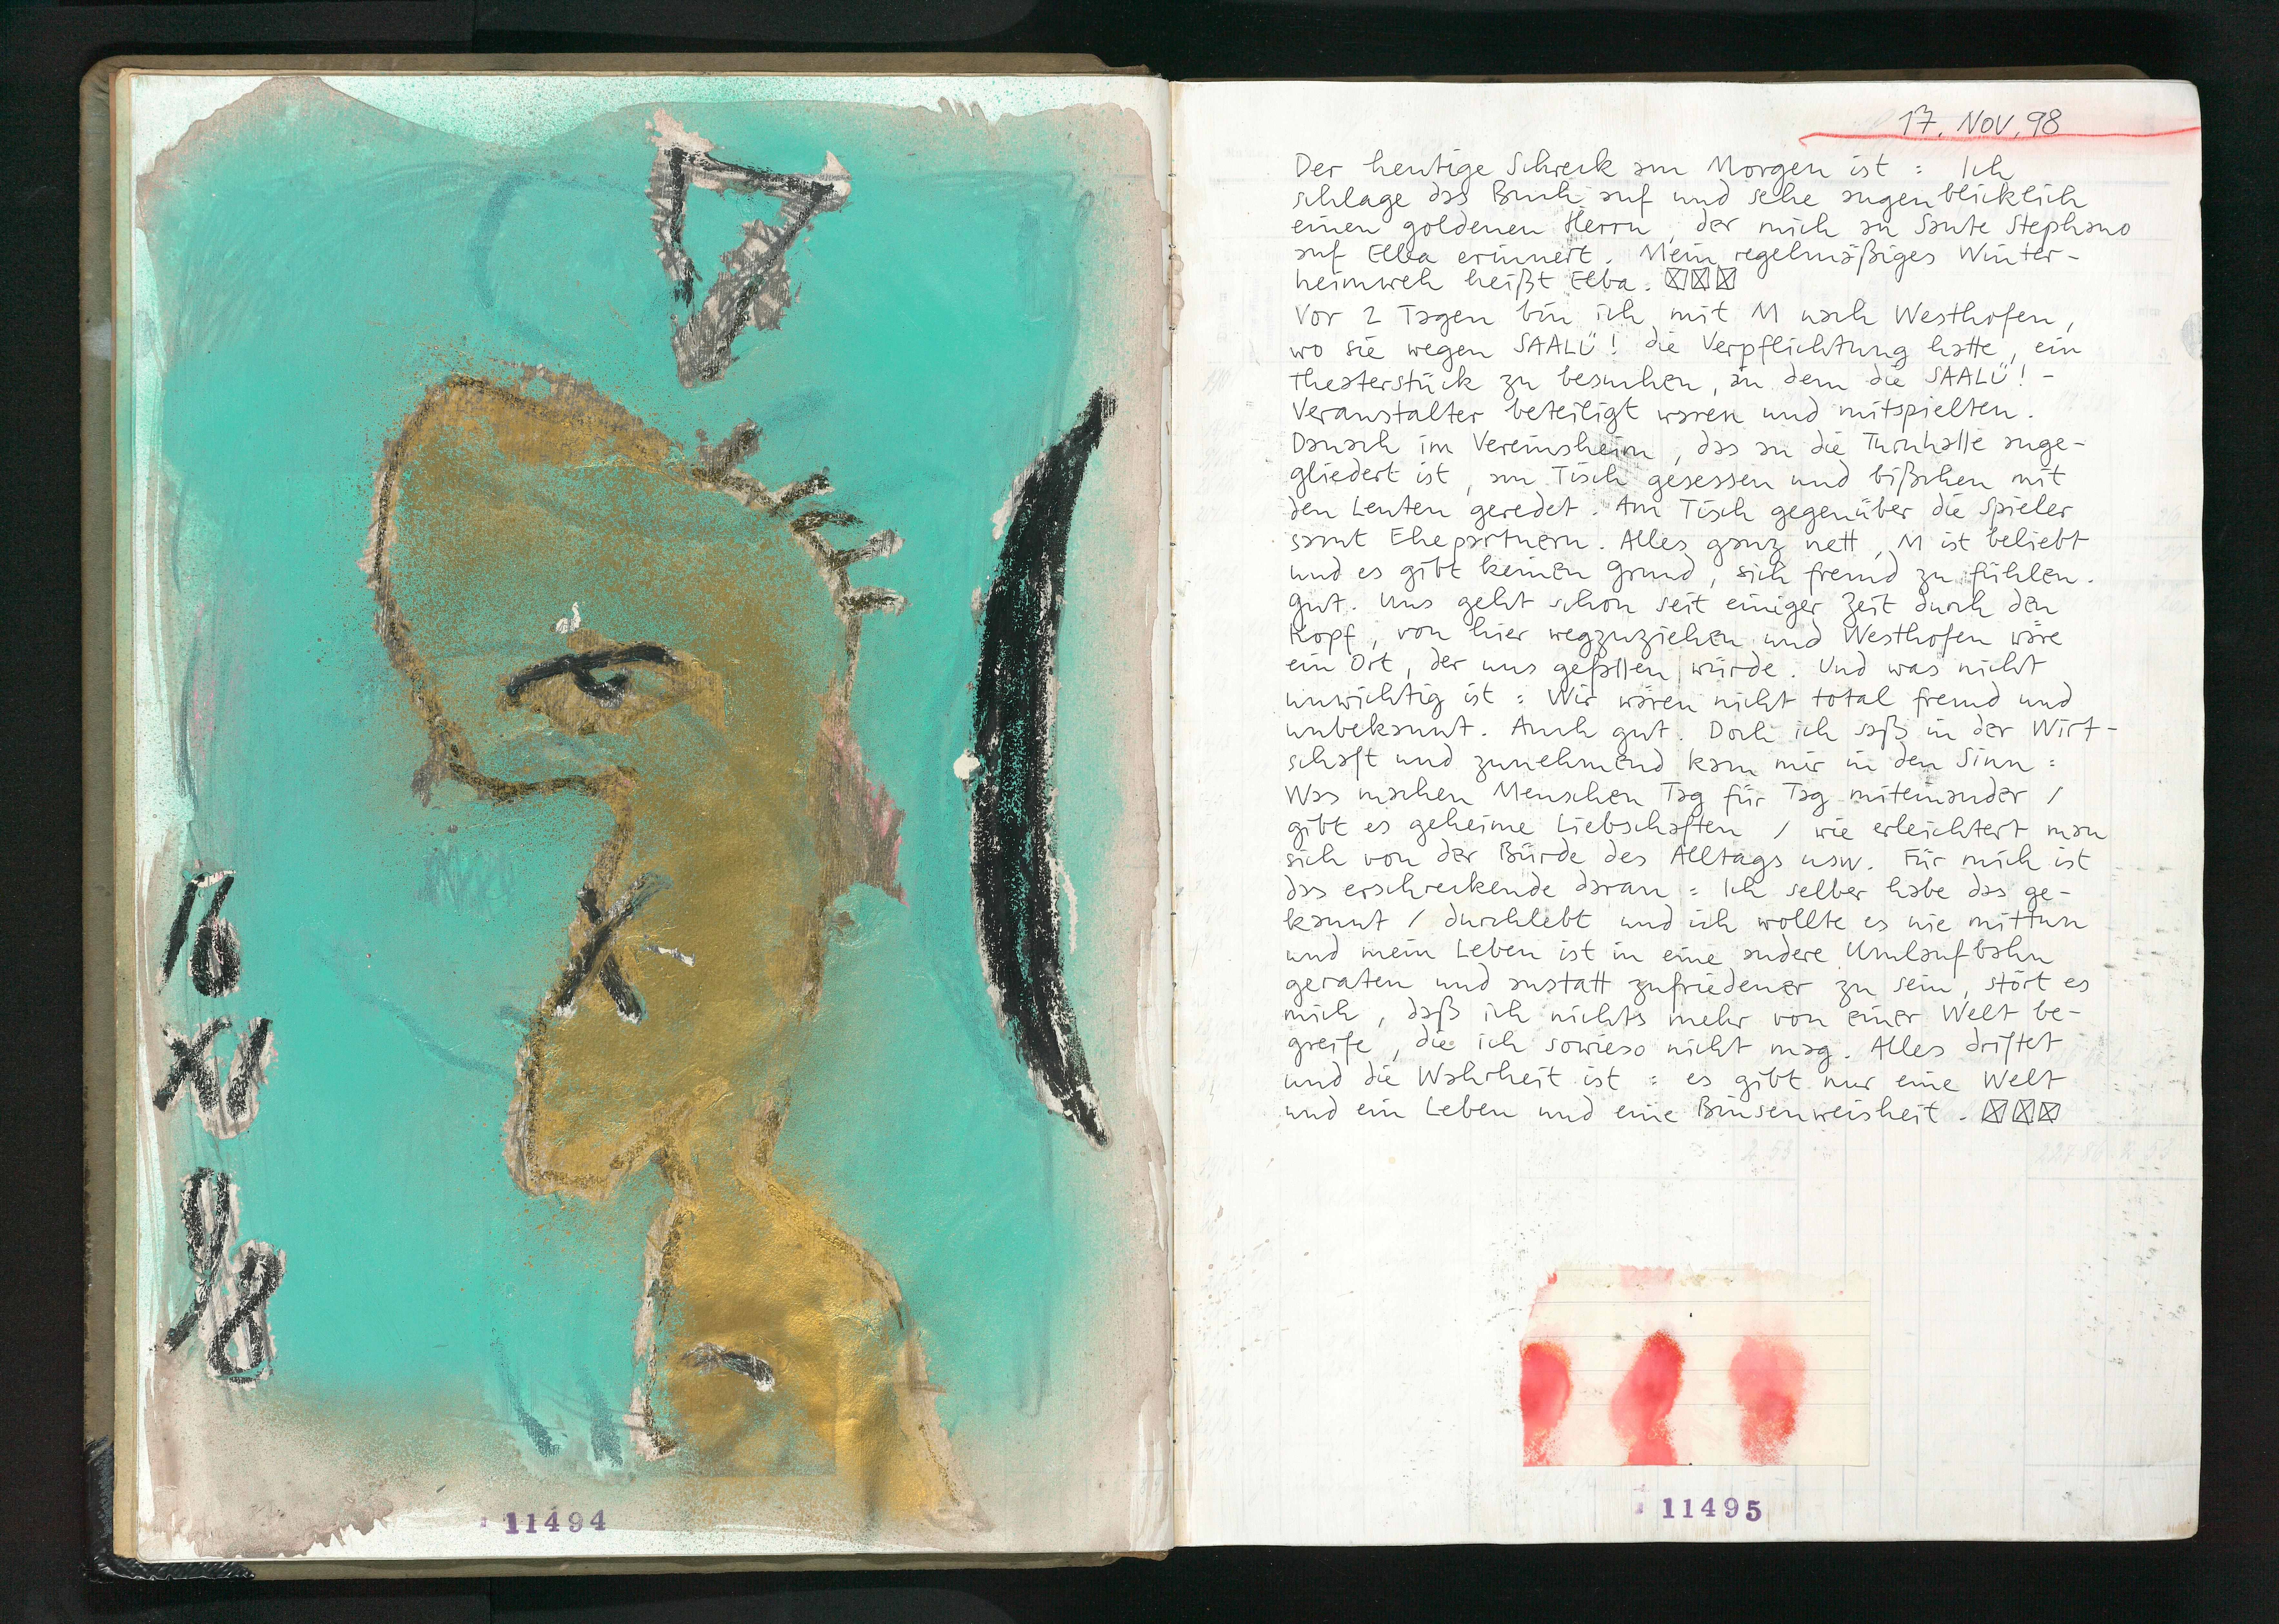 16
XI
98
11494
17. NOV. 98
Der heutige Schreck am Morgen ist : Ich
schlage das Buch auf und sehe augenblicklich
einen goldenen Herrn, der mich an Sante Stephano
auf Elba erinnert. Mein regelmäßiges Winter-
heimweh heißt Elba. ☒☒☒
Vor 2 Tagen bin ich mit M nach Westhofen,
wo sie wegen SAALÜ! die Verpflichtung hatte, ein
Theaterstück zu besuchen, an dem die SAALÜ! -
Veranstalter beteiligt waren und mitspielten.
Danach im Vereinsheim, das an die Turnhalle ange-
gliedert ist, am Tisch gesessen und bißchen mit
den Leuten geredet. Am Tisch gegenüber die Spieler
samt Ehepartnern. Alles ganz nett, M ist beliebt
und es gibt keinen Grund, sich fremd zu fühlen.
Gut. Uns geht schon seit einiger Zeit durch den
Kopf, von hier wegzuziehen und Westhofen wäre
ein Ort, der uns gefallen würde. Und was nicht
unwichtig ist : Wir wären nicht total fremd und
unbekannt. Auch gut. Doch ich saß in der Wirt-
schaft und zunehmend kam mir in den Sinn :
Was machen Menschen Tag für Tag miteinander /
gibt es geheime Liebschaften / wie erleichtert man
sich von der Bürde des Alltags usw. Für mich ist
das erschreckende daran : Ich selber habe das ge-
kannt / durchlebt und ich wollte es nie mittun
und mein Leben ist in eine andere Umlaufbahn
geraten und anstatt zufriedener zu sein, stört es
mich, daß ich nichts mehr von einer Welt be-
greife, die ich sowieso nicht mag. Alles driftet
und die Wahrheit ist : es gibt nur eine Welt
und ein Leben und eine Binsenweisheit. ☒☒☒
11495